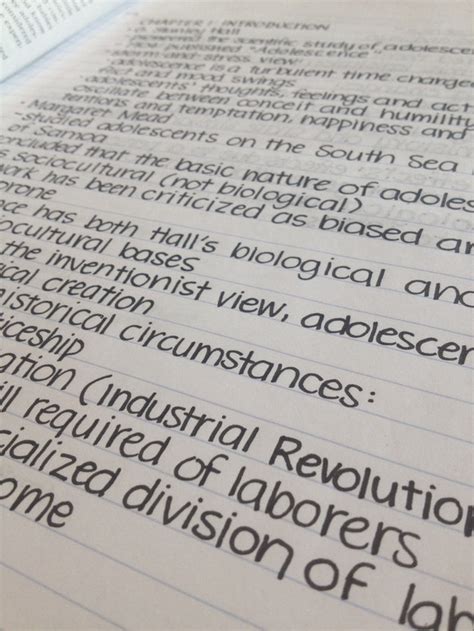 CHAPTER 1: INTRODUCTION
- G. Stanley Hall
- pioneered the scientific study of adolescen
- 1904: published "Adolescence"
- storm and stress view:
- adolescence is a turbulent time charge
flict and mood swings
- adolescents' thoughts, feelings and act
oscillate between conceit and humility
tentions and temptation, happiness and
- Margaret Mead
- studied adolescents on the South Sea I
of Samoa
oncluded that the basic nature of adoles
s sociocultural (not biological)
ork has been criticized as biased an
prone
nce has both Hall's biological and
ocultural bases
the inventionist view, adolescen
ical creation
historical circumstances:
ticeship
ation (Industrial Revolution
ill required of laborers
cialized division of lab
ome